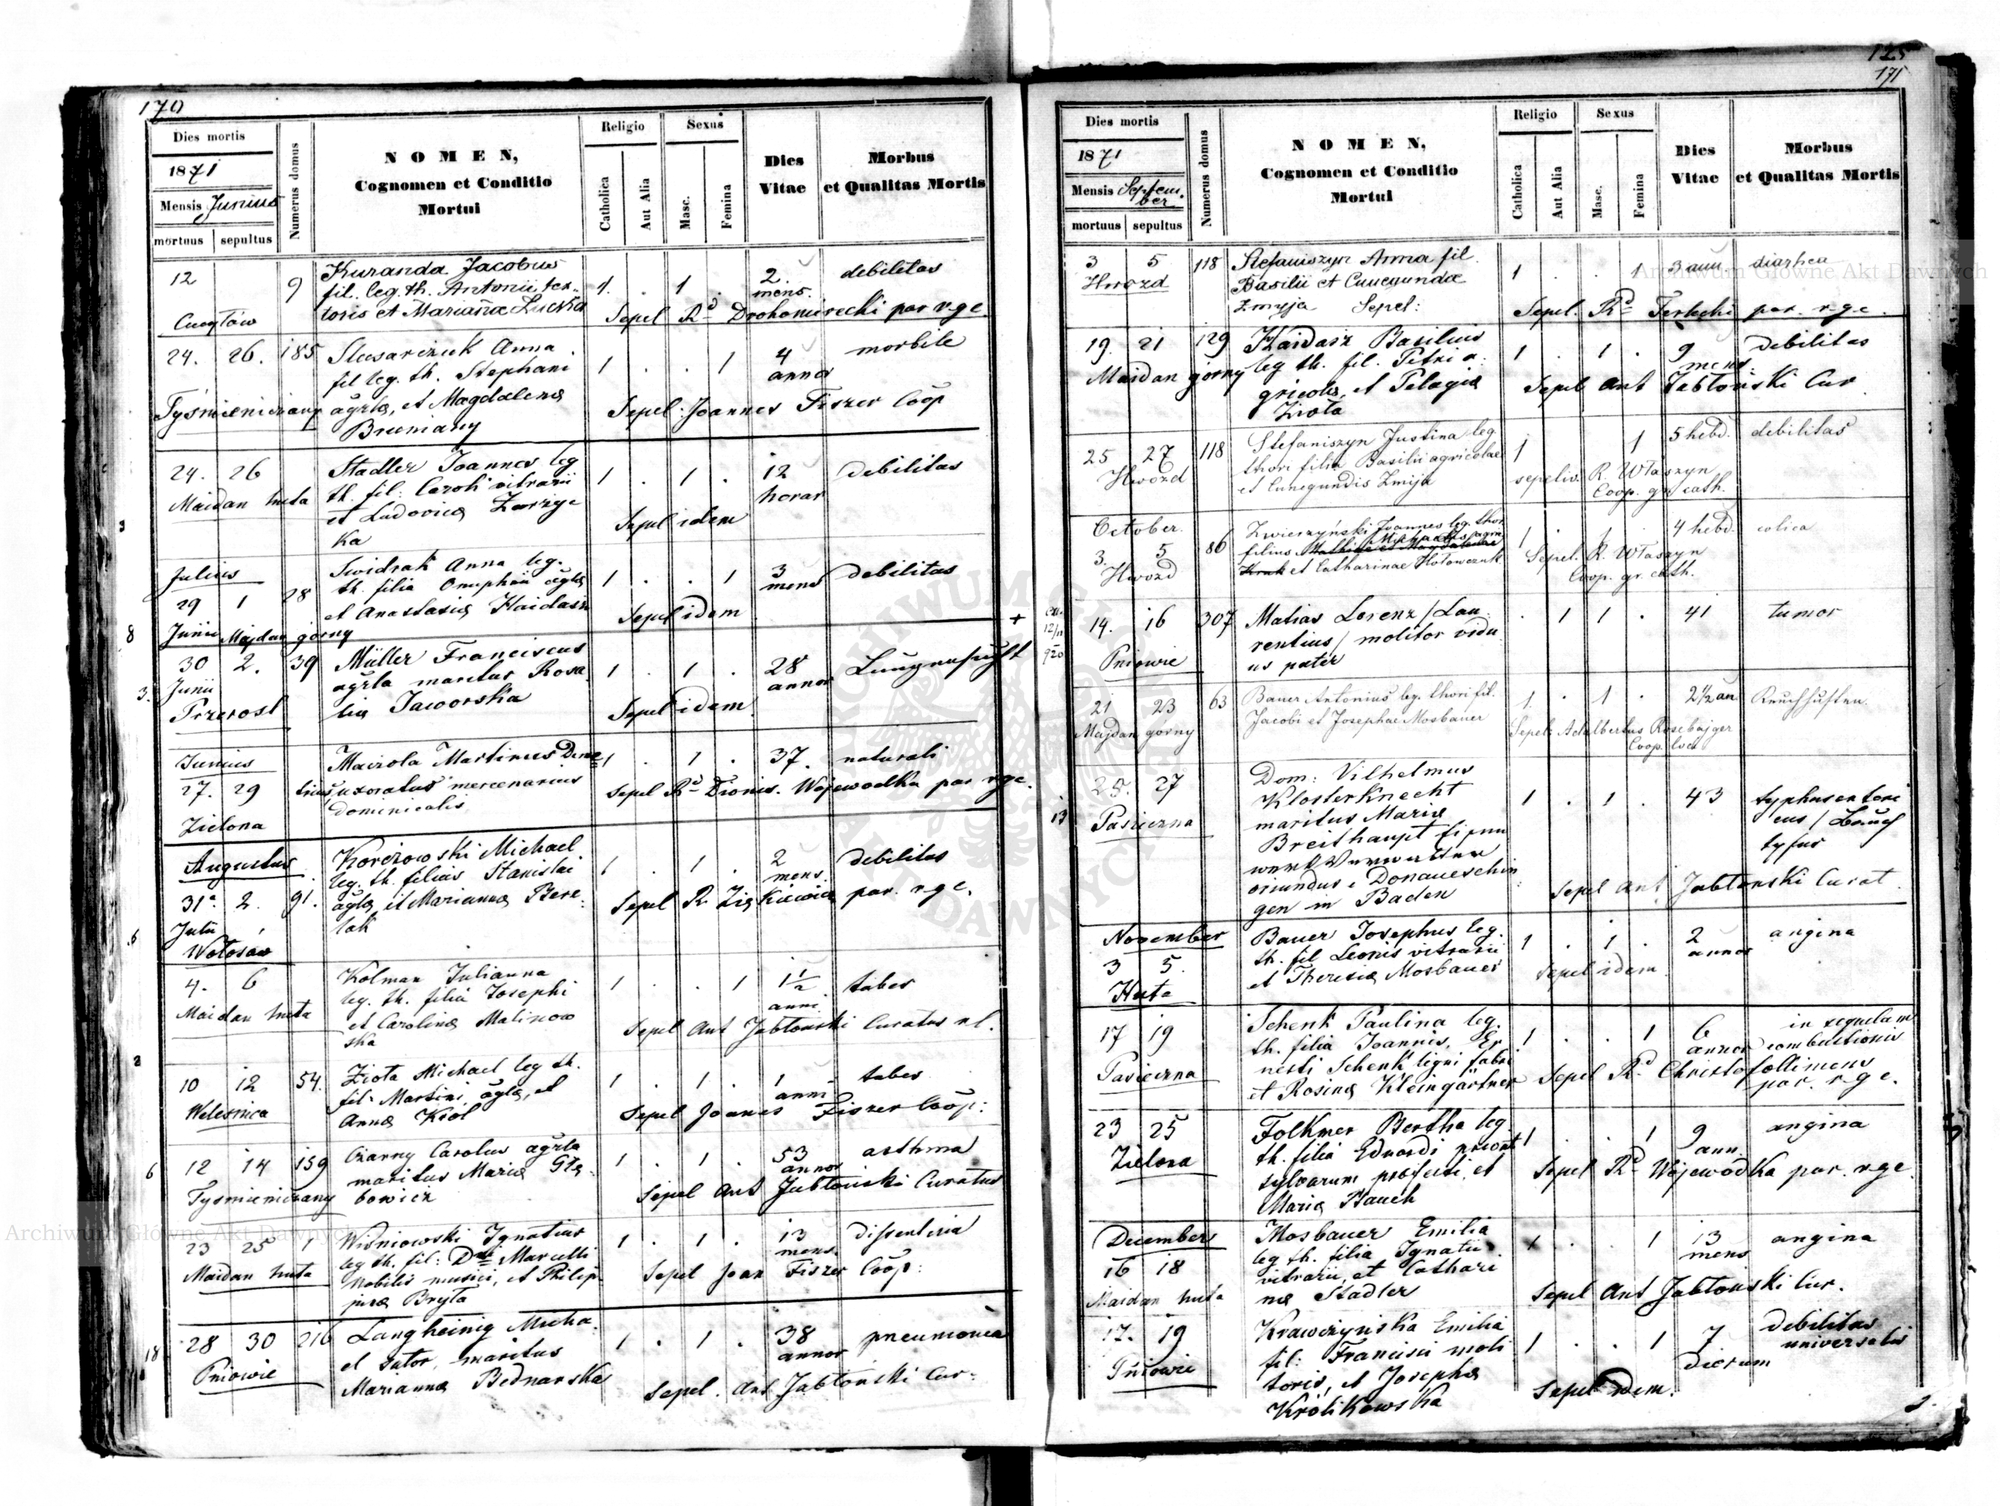 170
Dies mortis
1871
Mensis Junius
mortuus sepultus
Numerus domus
NOMEN,
Cognomen et Conditio
Mortui
Religio
Catholica
Aut Alia
Sexus
Masc.
Femina
Dies
Vitae
Morbus
et Qualitas Mortis
12 9 Kuranda Jacobus 1 . 1 . 2 debilitas
fil. leg. th. Antonii tex- mens.
toris et Mariannæ
Cucyłów Sepel Rd par r. gc.
24. 26. 185 Slusarczuk Anna 1 . . 1 4 morbile
fil leg. th. Stephani annor
Tyśmieniczany agrlæ, et Magdalenæ Sepel: Joannes Fiszer Coop
24. 26 Stadler Joannes leg 1 . 1 . 12 debilitas
Maidan huta th. fil: Caroli vitrarii horar
et Ludovicæ Zarzyc Sepel idem
ka
Julius
29 1 28 Swidrak Anna leg. 1 . . 1 3 debilitas
th. filia Onuphrii agrlæ mens
et Anastasiæ Haidasz Sepel idem
Junii Majdan górny
30 2. 39 Müller Franciscus 1 . 1 . 28
Junii agrla maritus Rosa annor
Przerosl liæ Jaworska Sepel idem
Junius
27. 29 Martinus 1 . 1 . 37. naturali
uxoratus mercenarius Sepel Rd Dionis. Wojewodka par r. gc.
Zielona dominicalis
Augustus
31a 2. 91. Korżowski Michael 1 . 1 . 2 debilitas
leg. th. filius Stanislai mens.
agrlæ et Mariannæ Bere- Sepel R. par. r. gc.
Julii lak
Wołosów
4. 6 Kolman Julianna 1 . . 1 1½ tabes
Maidan huta leg. th. filia Josephi anni
et Carolinæ Malinow Sepel Ant Jabłonski Curatus
ska
10 12 54. Ziota Michael leg th. 1 . 1 . 1 tabes
Welesnica fil. Martini agrlæ, et anni
Annæ Krol Sepel Joanes Fiszer Coop:
12 14 159 Czarny Carolus agrla 1 . 1 . 53 asthma
maritus Mariæ Głę- annor
Tyśmieniczany bowicz Sepel Ant Jabłoński Curatus
23 25 1 Wisniowski Ignatius 1 . 1 . 13 dissenteria
leg th. fil: Dni Marcelli mens
Maidan huta Nobilis musici, et Philip- Sepel Joan Fiszer Coop:
pinæ Bryła
28 30 216 Langheinig Micha- 1 . 1 . 38 pneumonia
Pniowie el sutor, maritus annor
Mariannæ Bednarska Sepel. Ant Jabłoński Cur-
125
171
Dies mortis
1871
Mensis Septem
ber.
mortuus sepultus
Numerus domus
NOMEN,
Cognomen et Conditio
Mortui
Religio
Catholica
Aut Alia
Sexus
Masc.
Femina
Dies
Vitae
Morbus
et Qualitas Mortis
3 5 118 Stefaniszyn Anna fil. 1 . . 1 3 ann diarhea
Hwozd Basilii et Cunegundæ
Zmyja Sepel: Sepel. Rd Terlecki par. r. gc.
19. 21 129 Haidasz Basilius 1 . 1 . 9 debilitas
Maidan górny leg th. fil. Petri a- mens.
gricolæ, et Pelagiæ Sepel Ant Jabłoński Cur
Ziota
25 27 118 Stefaniszyn Justina leg 1 1 5 hebd. debilitas
Hwozd thori filia Basilii agricolae sepeliv. R. Własz​yn
et Cunegundis Zmija Coop. gr cath.
October.
3. 5 86 Zwierzyński Joannes leg. thor 1 . 1 . 4 hebd colica
filius Sepel. R. Własz​yn
Hwozd et Catharinae Hołowczuk Coop. gr. cath.
14. 16 307 Matias Lerenz /Lau- . 1 1 . 41 tumor
rentius/ molitor vidu
Pniowie us pater
21 23 63 Bauer Antonius leg. thori fil. 1. . 1 . 2½ an
Majdan górny Jacobi et Josephae Mosbauer Sepel. Adalbertus
Coop. loci
25. 27 Dom: Vilhelmus 1 . 1 . 43
Pasieczna Klosterknecht
maritus Mariæ
Breithaupt
oriundus e Donaueschin Sepel Ant. Jabłonski Curat.
gen in Baden
November
3 5. Bauer Josephus leg. 1 . 1 . 2 angina
th. fil Leonis vitrarii annor
Huta et Theresiæ Mosbauer Sepel idem
17 19 Schenk Paulina leg. 1 . . 1 6 in sequelam
th. filia Joannis, Er annor combustionis
Pasieczna nesti Schenk ligni fabri Sepel Rd
et Rosinæ Kleingärtner par. r. gc.
23 25 Folkmer Bertha leg 1 . . 1 9 angina
th. filia Eduardi privat ann.
Zielona sylvarum præfecti, et Sepel Rd Wojewódka par. r. gc.
Mariæ Bauch
December
16 18 Mosbauer Emilia 1 . . 1 13 angina
leg th. filia Ignatii mens
Maidan huta vitrarii, et Cathari Sepel Ant Jabłoński Cur.
næ Stadler
17. 19 Krawczyńska Emilia 1 . . 1 7 debilitas
fil: Francisci moli dierum universalis
Pniowie toris, et Josephæ Sepel idem.
Królikowska
Archiwum Główne Akt Dawnych